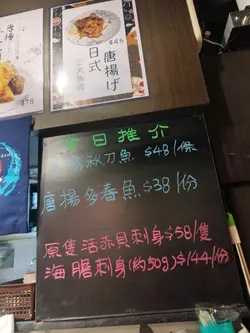 唐揚
$45
日式
唐揚げ
三文魚腩
今日推介
秋刀魚 $48/條
唐揚多春魚 $38/份
原隻活赤貝刺身 $58/隻
海膽刺身(約50g) $144/份